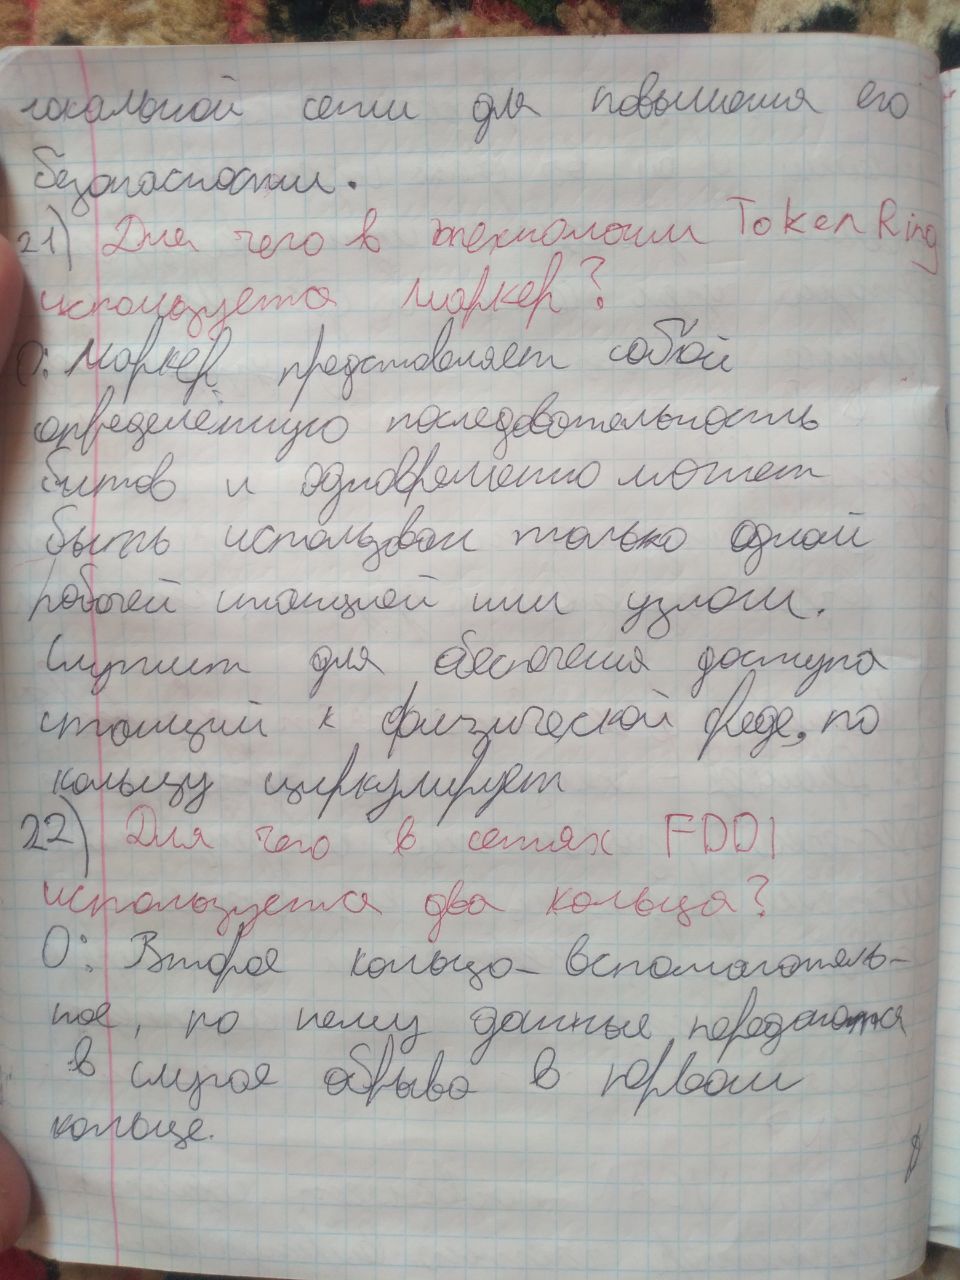 локальной сети для повышения его
безопасности.
21) Для чего в технологии Token Ring
используется маркер?
О: Маркер представляет собой
определённую последовательность
битов и одновременно может
быть использован только одной
рабочей станцией или узлом.
Служит для обеспечения доступа
станций к физической среде, по
кольцу циркулирует
22) Для чего в сетях FDDI
используется два кольца?
О: Второе кольцо - вспомогатель-
ное, по нему данные передаются
в случае обрыва в первом
кольце.